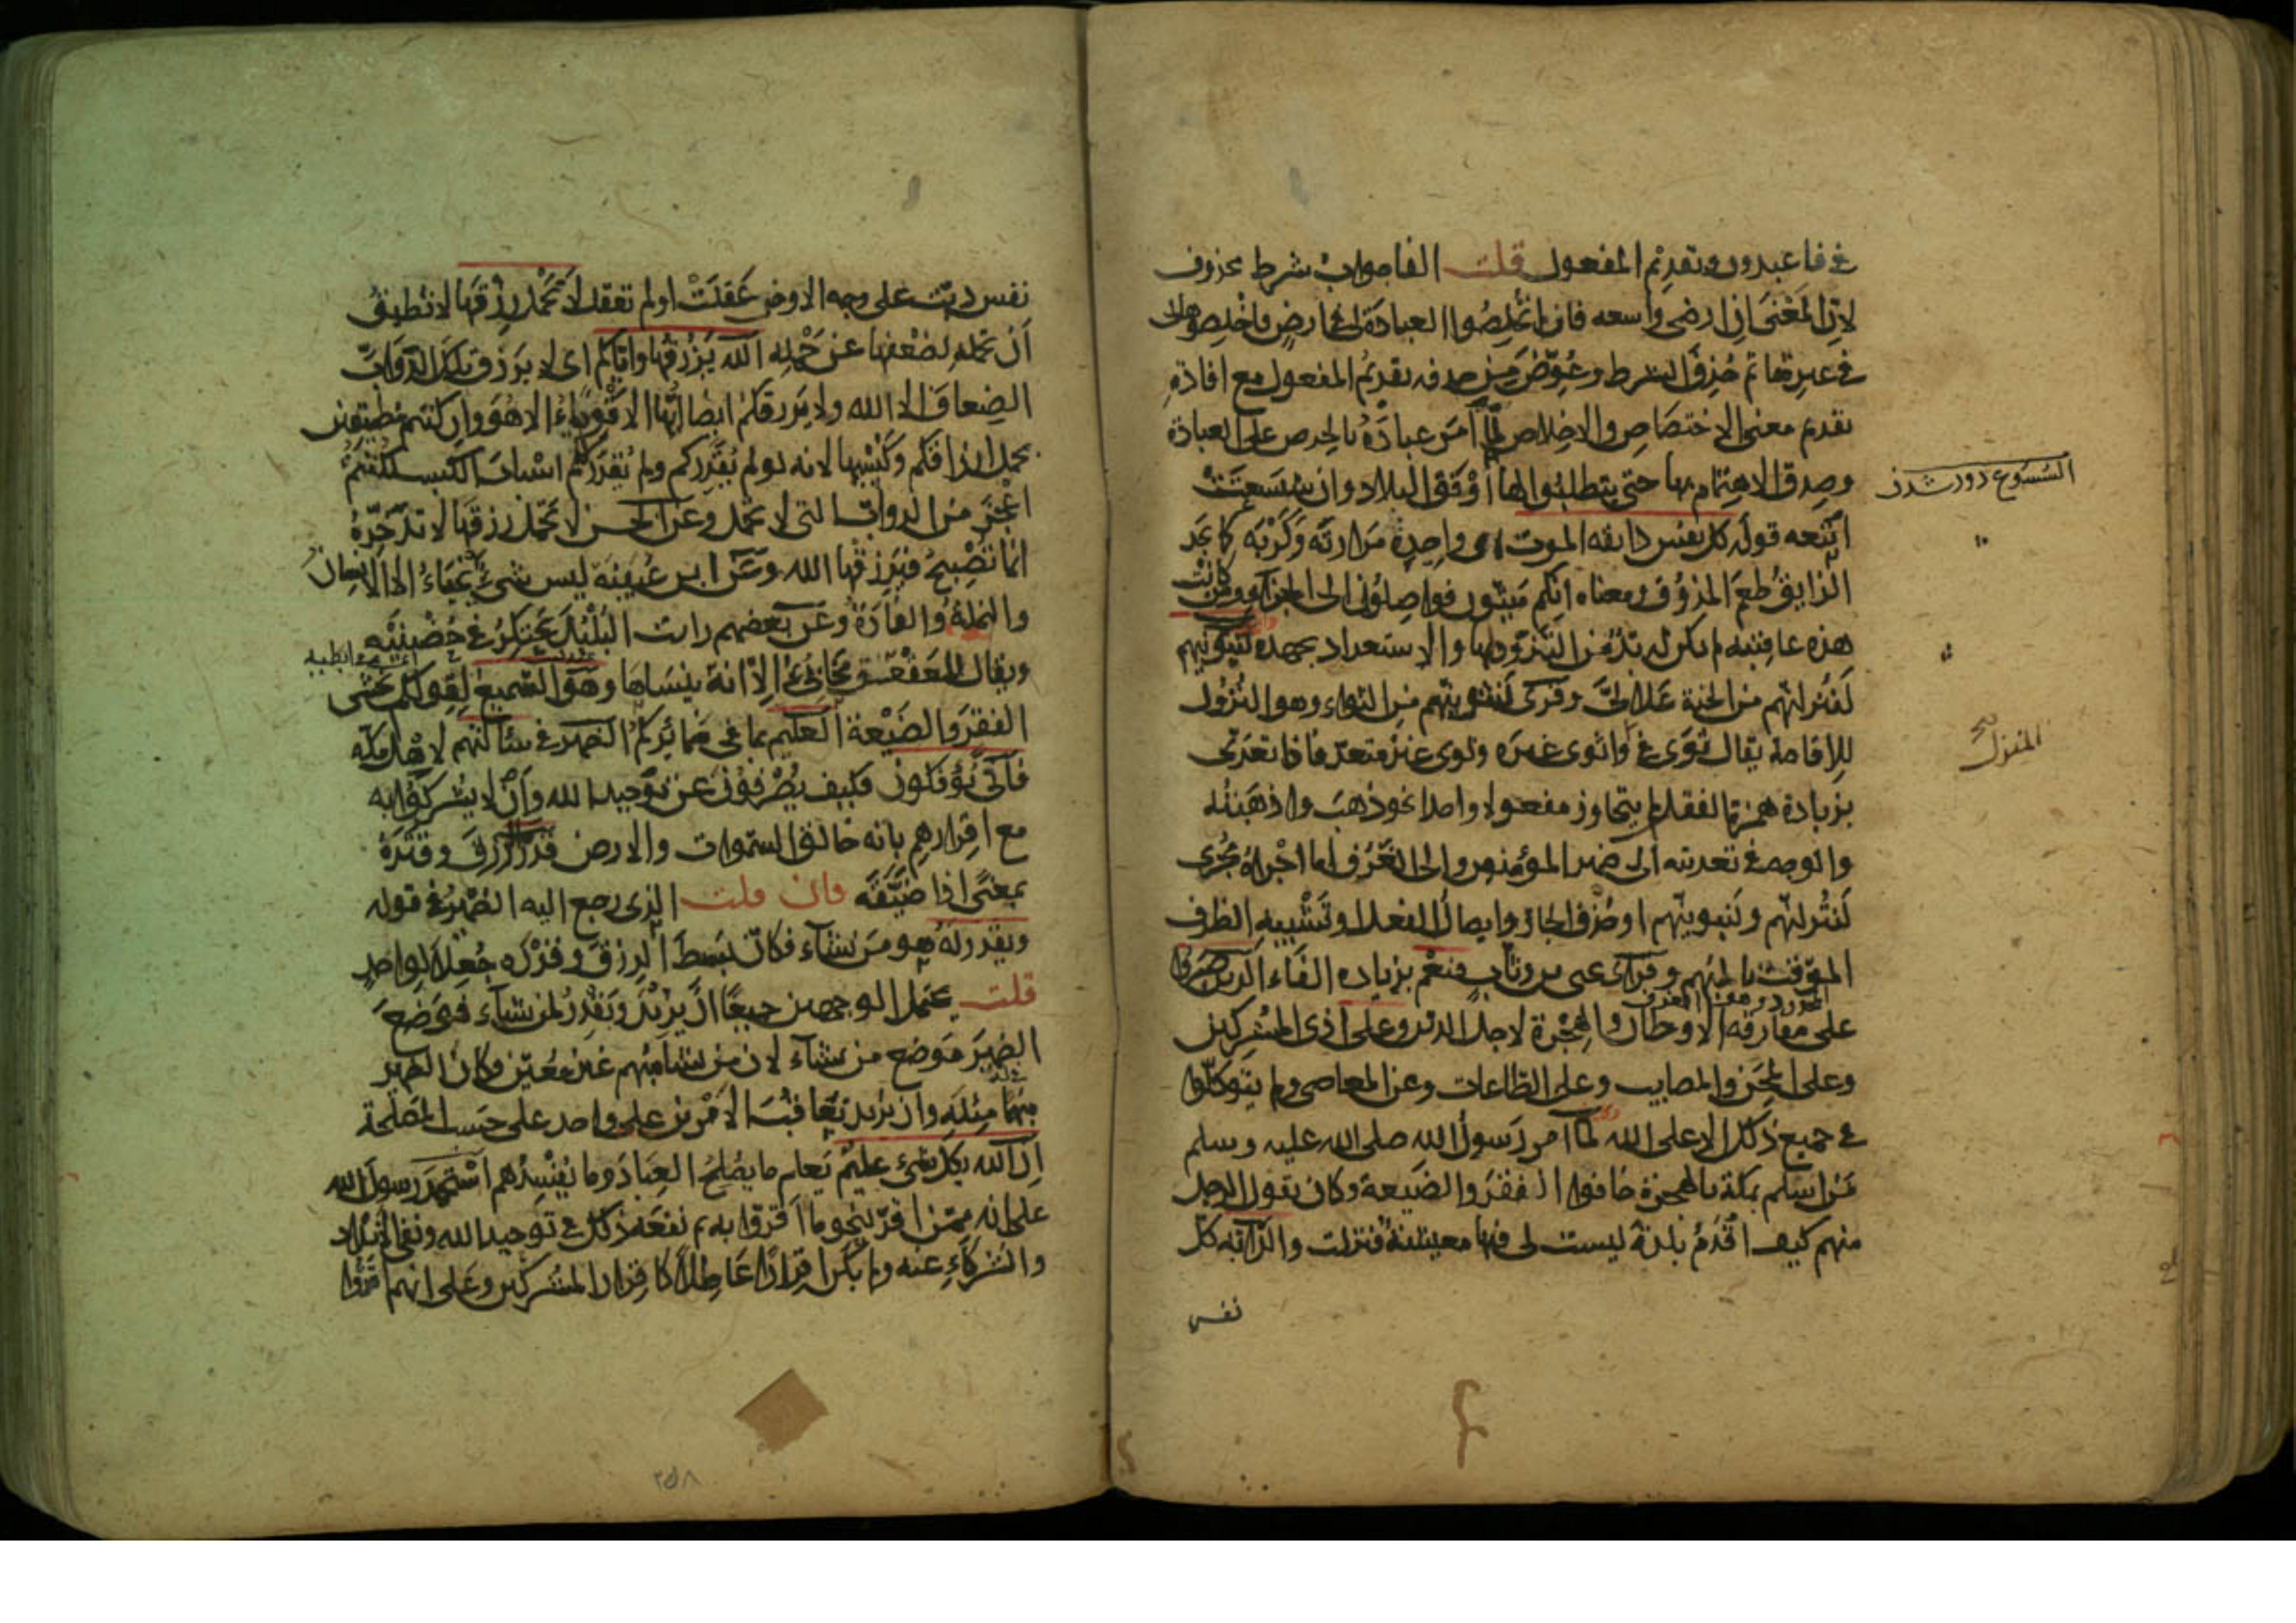 في فاعبدون وتقديم المفعول قلت الفا جواب شرط محذوف
لان المعنى ان ارضى واسعه فان لم تخلصوا العبادة لى فى ارض فاخلصوها لى
فى غيرها ثم حذف الشرط وعوض من حذفه تقديم المفعول مع افادة
تقديم معنى الاختصاص والاخلاص لما امر عباده بالحرص على العبادة
وصدق الاهتمام بها حتى يتطلبوا لها اوفق البلاد وان شسعت
اتبعه قوله كل نفس ذايقه الموت اى واجدة مرارته وكربه كما يجد
الذايق طعم المذوق ومعناه انكم ميتون فواصلون الى الجزاء ومن كانت
هذه عاقبته لم يكن له بد من التزود لها والاستعداد بجهده لنبوئنهم
لننزلنهم من الجنة علالى وقرى لنثوينهم من الثواء وهو النزول
للاقامة يقال ثوى فى واثوى غيره وثوى غير متعد فاذا تعدى
بزيادة همزة النقل لم يتجاوز مفعولا واحدا نحو ذهب واذهبته
والوجه فى تعديته الى ضمير المؤمنين والى الغرف اما اجراؤه مجرى
لننزلنهم ولنبوينهم او حذف الجار وايصال الفعل او تشبيه الظرف
الموقت بالمبهم وقرأ يحيى بن وثاب فنعم بزيادة الفاء الذين صبروا
على مفارقة الاوطان والهجرة لاجل الدين وعلى اذى المشركين
وعلى المحن والمصايب وعلى الطاعات وعن المعاصى ولم يتوكلوا
فى جميع ذلك الا على الله لما امر رسول الله صلى الله عليه وسلم
من اسلم بمكة بالهجرة خافوا الفقر والضيعة وكان يقول الرجل
منهم كيف اقدم بلدة ليست لى فيها معيشة فنزلت والدابة كل
نفس
السسوع دور شدن
المنزل صح
نفس دبت على وجه الارض عقلت او لم تعقل لا تحمل رزقها لا تطيق
ان تحمله لضعفها عن حمله الله يرزقها واياكم اى لا يرزق تلك الدواب
الضعاف الا الله ولا يرزقكم ايضا ايها الاقوياء الا هو وان كنتم مطيقين
بحمل ارزاقكم وكسبها لانه لو لم يقدركم ولم يقدر لكم اسباب الكسب لكنتم
اعجز من الدواب التى لا تحمل وعن الحسن لا تحمل رزقها لا تدخره
انما تصبح فيرزقها الله وعن ابن عيينة ليس شىء يخباء الا الانسان
والنملة والفارة وعن بعضهم رايت البلبل يحتكر فى حضنيه
ويقال للعقعق مخابئ الا انه ينساها وهو السميع لقولكم نخشى
الفقر والضيعة العليم بما فى ضمائركم الضمير فى سالتهم لاهل مكة
فانى يؤفكون فكيف يصرفون عن توحيد الله وان لا يشركوا به
مع اقرارهم بانه خالق السموات والارض قدر الرزق وقتره
بمعنى اذا ضيقه فان قلت الذى رجع اليه الضمير فى قوله
ويقدر له هو من يشاء فكان بسط الرزق وقدره جعلا لواحد
قلت يحتمل الوجهين جميعا ان يريد ويقدر لمن يشاء فوضع
الضمير موضع من يشاء لان من يشاء مبهم غير معين وكان الضمير
مبهما مثله وان يريد تعاقب الامرين على واحد على حسب المصلحة
ان الله بكل شىء عليم يعلم ما يصلح العباد وما يفسدهم استحمد رسول الله
على انه ممن اقر بنحو ما اقروا به ثم نفعه ذلك فى توحيد الله ونفى الانداد
والشركاء عنه ولم يكن اقرارا عاطلا كاقرار المشركين وعلى انهم اقروا
٢٥٨